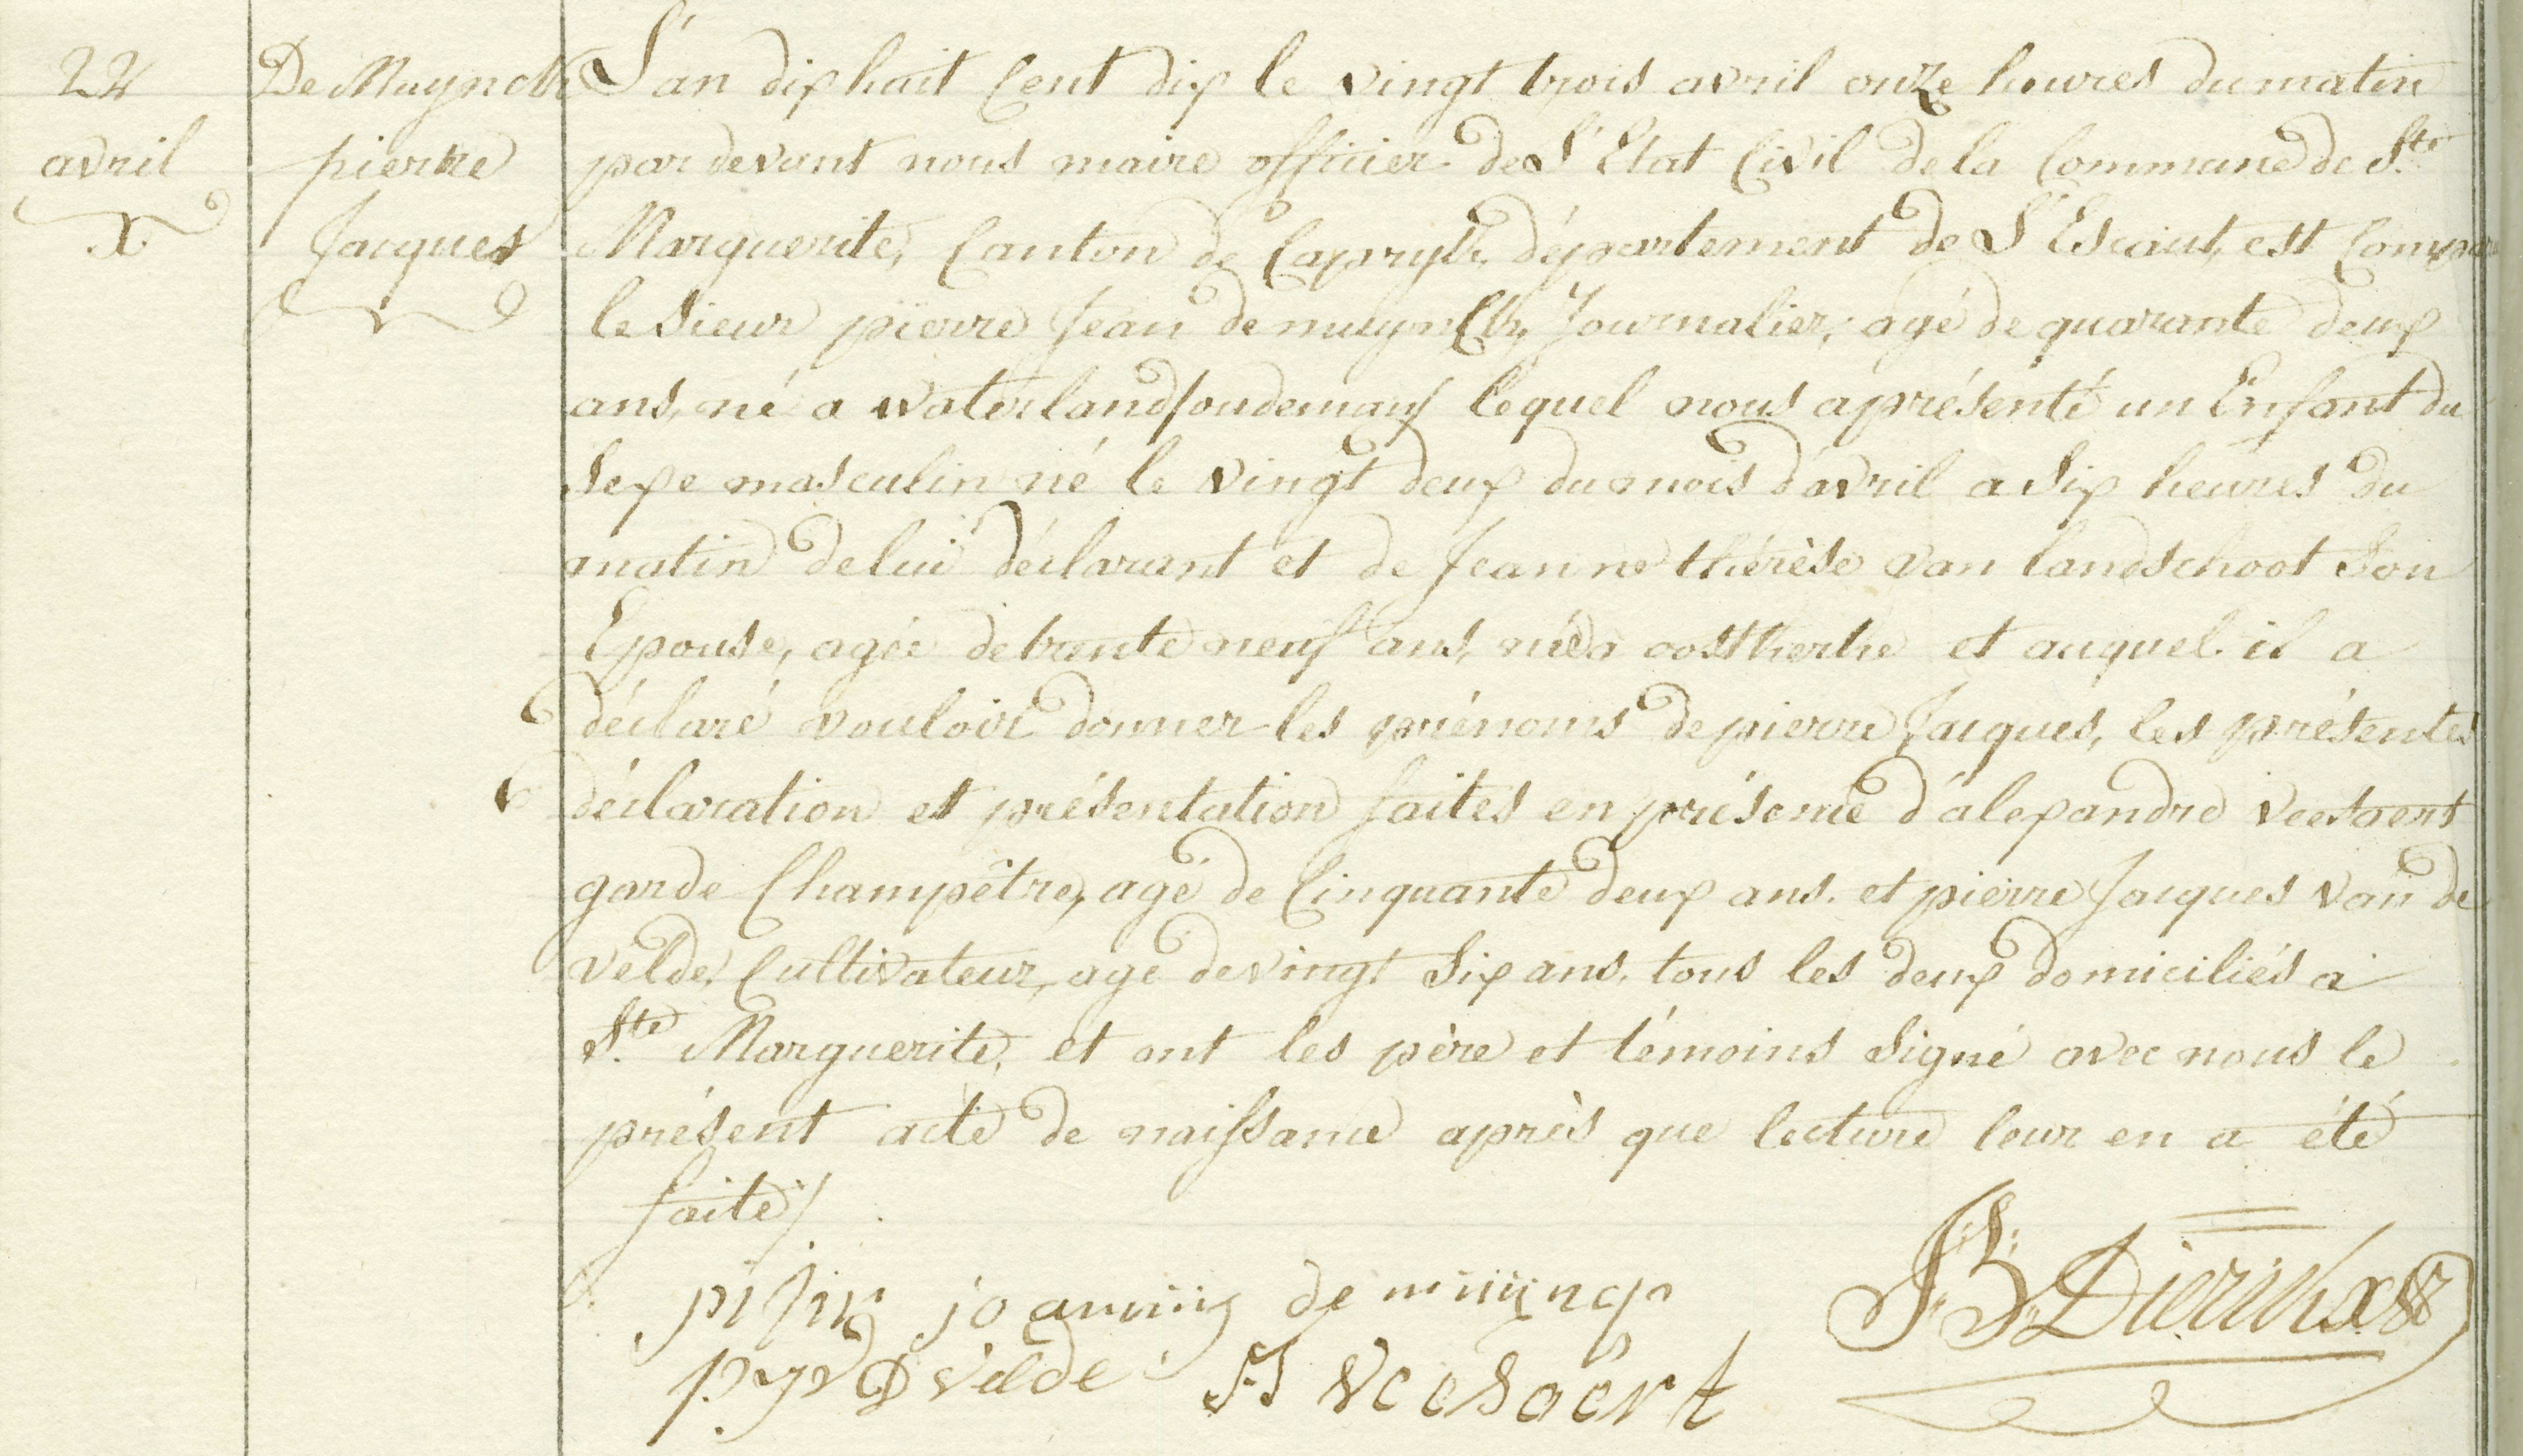 22
avril
De Muynck
pierre
Jacques
L'an dix huit Cent dix le vingt trois avril onze heures du matin
par devant nous maire officier de L'Etat Civil de la Commune de Ste
Marguerite, Canton de Capryk, département de L'Escaut, est Compar
le Sieur pierre Jean de muynck, Journalier, agé de quarante deux
ans, né a waterland/oudeman/ lequel nous a présenté un Enfant du
Sexe masculin né le vingt deux du mois d'avril a Six heures du
matin de lui déclarant et de Jeanne thérèse van landschoot Son
Epouse, agée de trente neuf ans, née a oostkerke et auquel il a
déclaré vouloir donner les prénoms de pierre Jacques, les présentes
déclaration et présentation faites en présence d'alexandre veesaert
garde Champêtre, agé de Cinquante deux ans. et pierre Jacques van de
velde, Cultivateur, agé de vingt Six ans, tous les deux domiciliés a
Ste Marguerite, et ont les père et témoins Signé avec nous le
présent acte de naissance après que lecture leur en a été
faite/.
joannis de
velde
veesaert
JB Dierickx